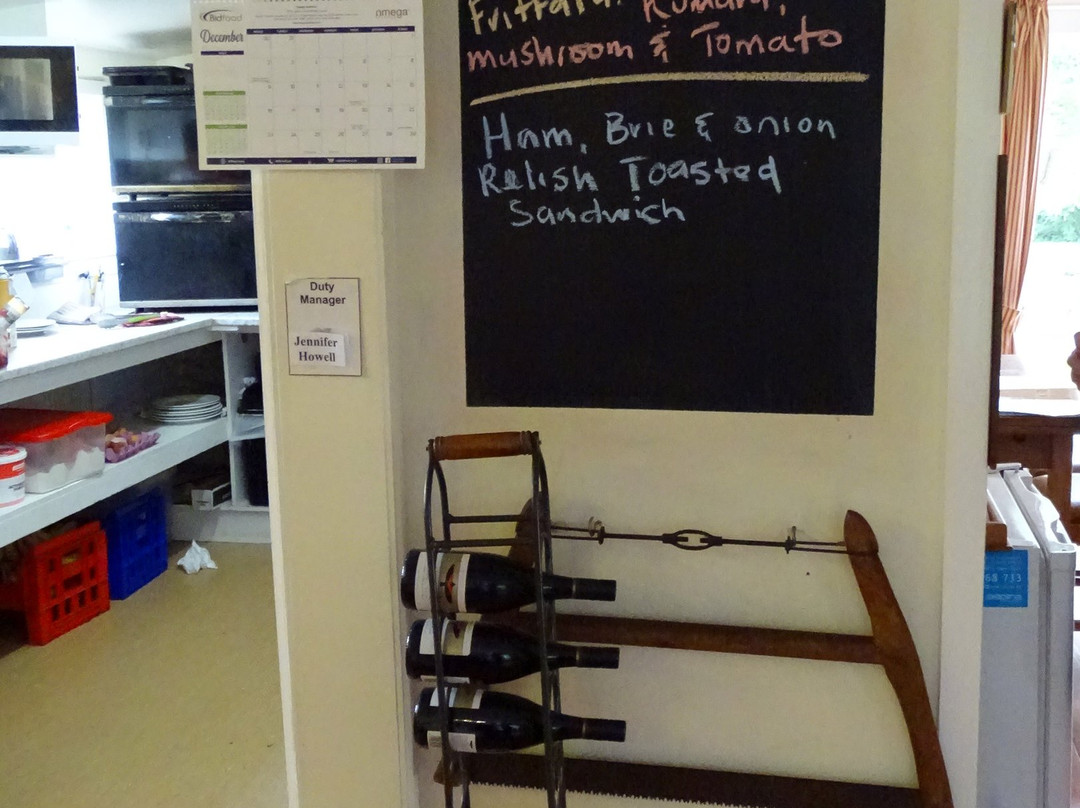 Bidfood
nimega
December
Frittata: Kumara,
mushroom & Tomato
Ham, Brie & onion
Relish Toasted
Sandwich
Duty
Manager
Jennifer
Howell
68 713